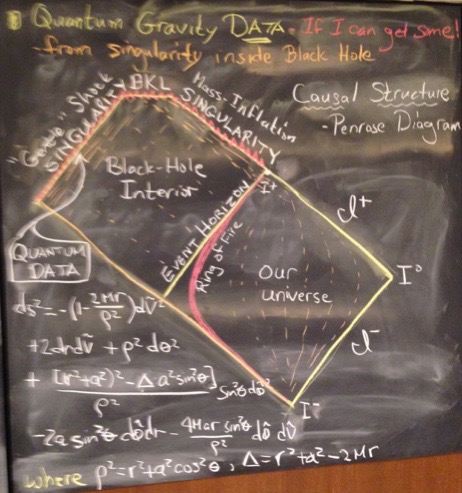 Quantum Gravity DATA - If I can get some!
from singularity inside Black Hole
"Gentle" Shock SINGULARITY
BKL
Mass-Inflation SINGULARITY
Causal Structure
- Penrose Diagram
Black-Hole
Interior
I⁺
EVENT HORIZON
Ring of Fire
I⁺
I⁰
QUANTUM
DATA
Our
universe
ds² = -(1-2Mr/ρ²)dṽ²
+2drdṽ + ρ²dθ²
+ [(r²+a²)² - Δa²sin²θ]/ρ² sin²θdφ̃²
I⁻
I⁻
-2a sin²θ dφ̃dr - 4Mar sin²θ/ρ² dφ̃ dṽ
where ρ²=r²+a²cos²θ, Δ=r²+a²-2Mr